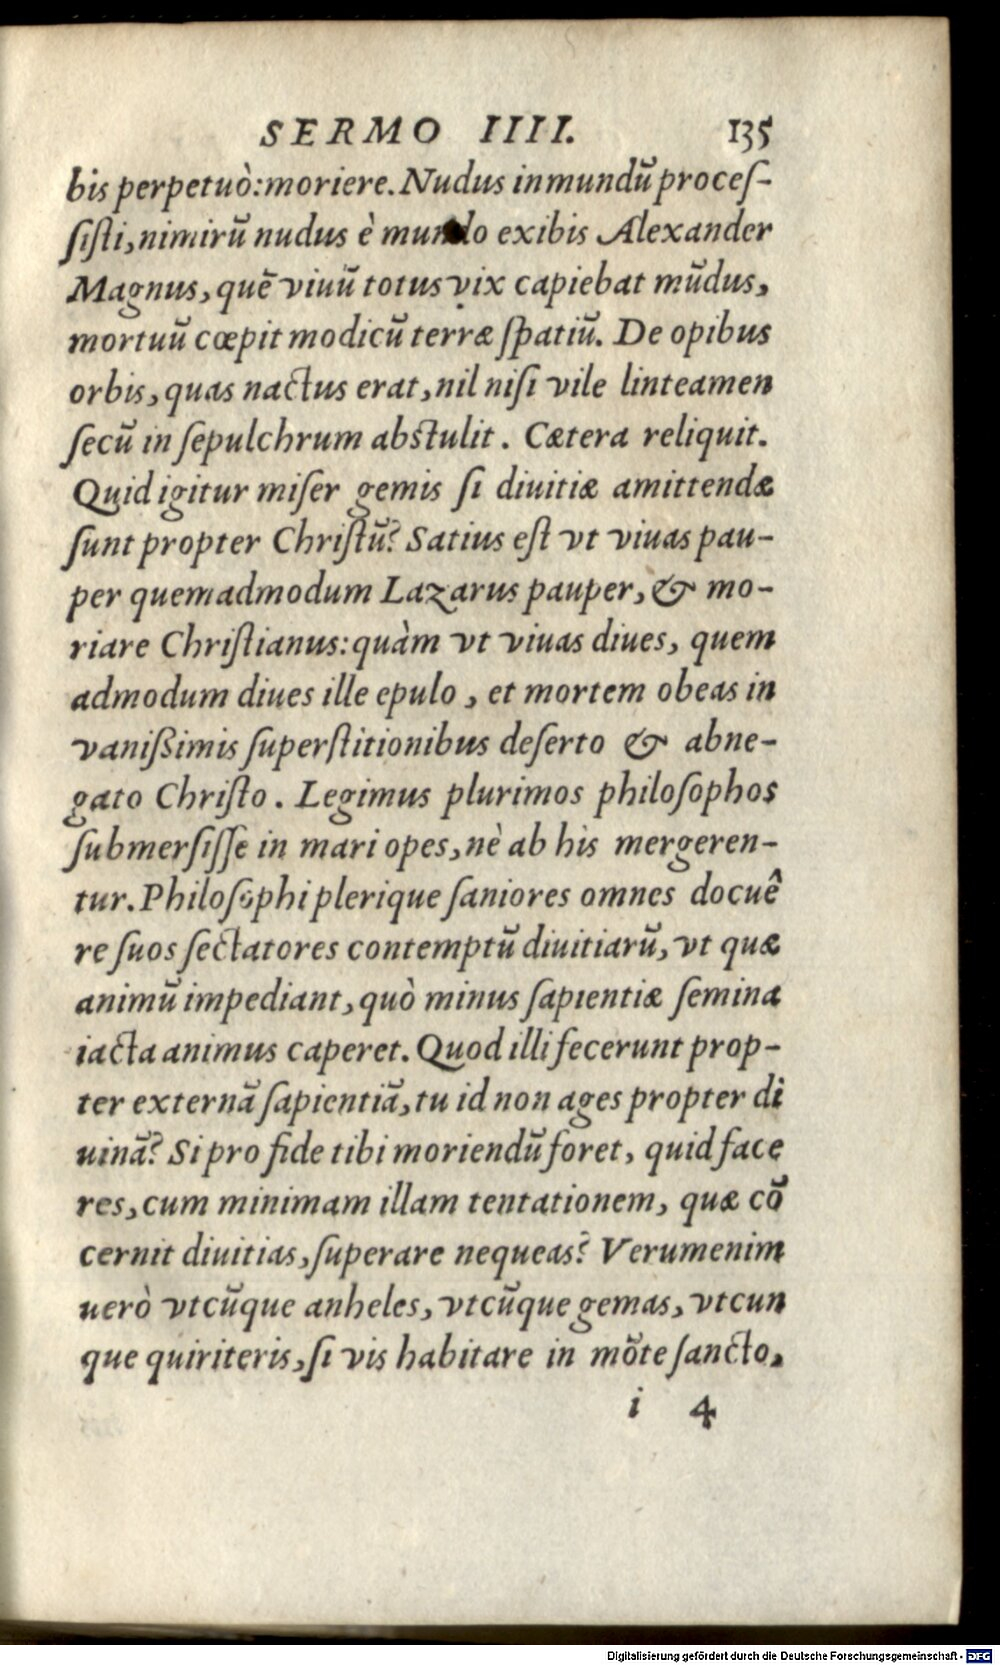 SERMO IIII. 135
bis perpetuò:moriere. Nudus in mundũ proceſ-
ſiſti, nimirũ nudus è mundo exibis Alexander
Magnus, quẽ viuũ totus vix capiebat mũdus,
mortuũ cœpit modicũ terræ ſpatiũ. De opibus
orbis, quas nactus erat, nil niſi vile linteamen
ſecũ in ſepulchrum abstulit. Cætera reliquit.
Quid igitur miſer gemis ſi diuitiæ amittendæ
ſunt propter Chriſtũ? Satius eſt vt viuas pau-
per quemadmodum Lazarus pauper, & mo-
riare Chriſtianus: quàm vt viuas diues, quem
admodum diues ille epulo, et mortem obeas in
vanißimis ſuperſtitionibus deſerto & abne-
gato Chriſto. Legimus plurimos philoſophos
ſubmerſiſſe in mari opes, nè ab his mergeren-
tur. Philoſophi plerique ſaniores omnes docuê
re ſuos ſectatores contemptũ diuitiarũ, vt quæ
animũ impediant, quò minus ſapientiæ ſemina
iacta animus caperet. Quod illi fecerunt prop-
ter externã ſapientiã, tu id non ages propter di
uinã? Si pro fide tibi moriendũ foret, quid face
res, cum minimam illam tentationem, quæ cõ
cernit diuitias, ſuperare nequeas? Verumenim
uerò vtcũque anheles, vtcũque gemas, vtcun
que quiriteris, ſi vis habitare in mõte ſancto,
i 4
Digitalisierung gefördert durch die Deutsche Forschungsgemeinschaft - DFG